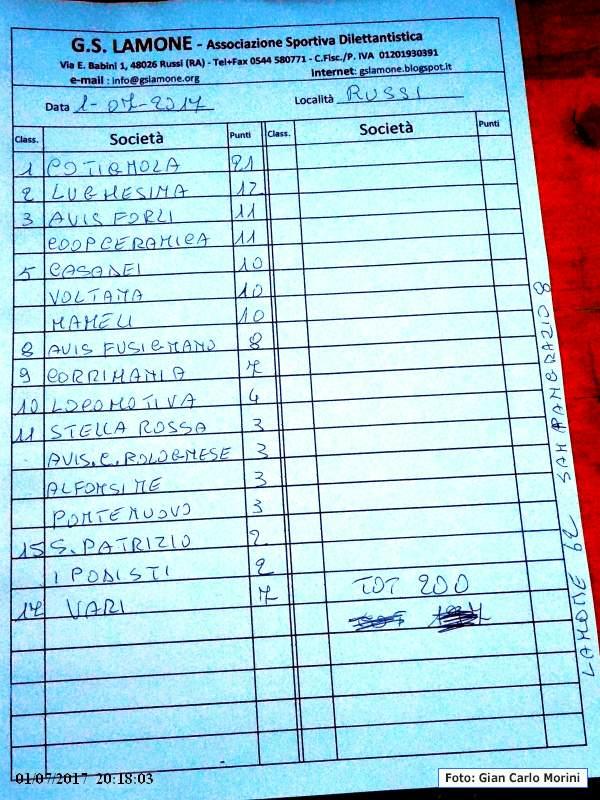 G.S. LAMONE - Associazione Sportiva Dilettantistica
Via E. Babini 1, 48026 Russi (RA) - Tel+Fax 0544 580771 - C.Fisc./P. IVA 01201930391
e-mail : info@gslamone.org Internet: gslamone.blogspot.it
Data 1-07-2017 Località RUSSI
Class. Società Punti Class. Società Punti
1 COTIGNOLA 21
2 LUGHESINA 12
3 AVIS FORLI 11
COOPCERAMICA 11
5 CASADEI 10
VOLTANA 10
MAMELI 10
8 AVIS FUSIGNANO 8
9 CORRIMANIA 7
10 LOCOMOTIVA 4
11 STELLA ROSSA 3
AVIS.C.BOLOGNESE 3
ALFONSINE 3
PONTENUOVO 3
15 S.PATRIZIO 2
I PODISTI 2
17 VARI 7
TOT 200
LAMONE 62 SAN PANCRAZIO 8
01/07/2017 20:18:03
Foto: Gian Carlo Morini